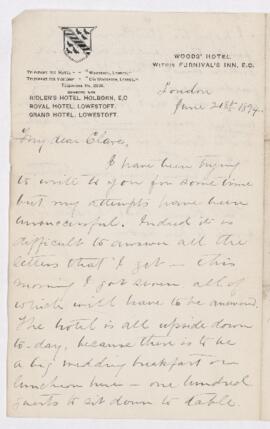 WOODS' HOTEL,
WITHIN FURNIVAL'S INN, E.C.
RIDLER'S HOTEL, HOLBORN, E.C
ROYAL HOTEL, LOWESTOFT.
GRAND HOTEL, LOWESTOFT.
London
June 21st 1894.
My dear Clare,
I have been trying
to write to you for some time
but my attempts have been
unsuccessful. Indeed it is
difficult to answer all the
letters that I get – this
morning I got seven all of
which will have to be answered.
The hotel is all upside down
to-day, because there is to be
a big wedding breakfast or
luncheon here – one hundred
guests to sit down to table.